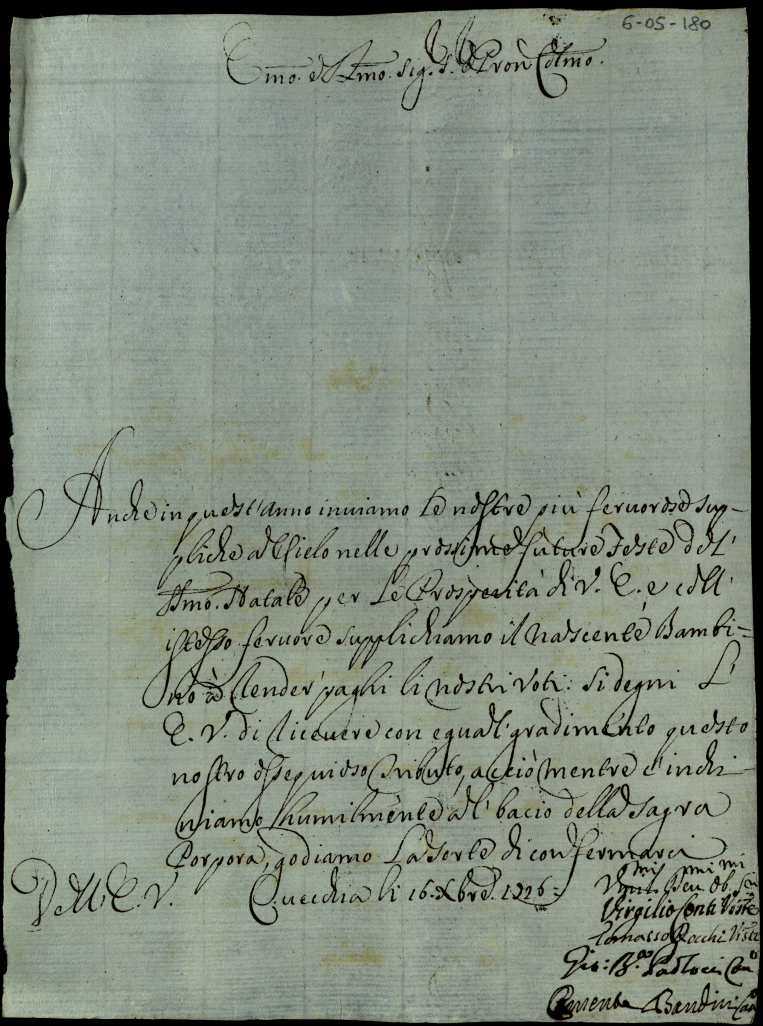 6-05-180
Emo. e Rmo. Sig.r Pron Colmo.
Anche in quest'anno inuiamo le nostre più feruorose sup-
pliche al Cielo nelle prossime future Feste del
SSmo. Natale per le Prosperità di V. E. e coll'
istesso feruore supplichiamo il nascente Bambi-
no à render paghi li nostri voti: Si degni L'
E. V. di riceuere con egual gradimento questo
nostro ossequioso tributo, acciò mentre c'inchi-
niamo humilmente al bacio della Sagra
Porpora, godiamo la sorte di confermarci
Dell' E. V. C.uecchia li 16. Xbre. 1726:
Virgilio Conti
Tomasso Rocchi
Gio: B.a
Bandini